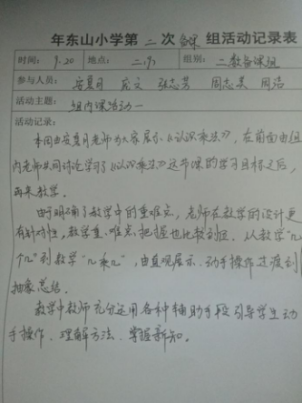 年东山小学第二次备课组活动记录表
时间: 9.20 地点: 二(7) 组别: 二数备课组
参与人员: 安夏月 庞文 张志芳 周志美 周洁
活动主题: 组内课活动一
活动记录:
本周由安夏月老师为大家展示《认识乘法》, 在前面由组
内老师共同讨论学习了《认识乘法》这节课的学习目标之后,
再来教学。
由于明确了教学中的重难点, 老师在教学的设计更
有针对性, 教学重、难点把握也比较到位。从教学"几
个几"到教学"几乘几", 由直观展示、动手操作过渡到
抽象总结。
教学中教师充分运用各种辅助手段引导学生动
手操作、理解方法、掌握新知。